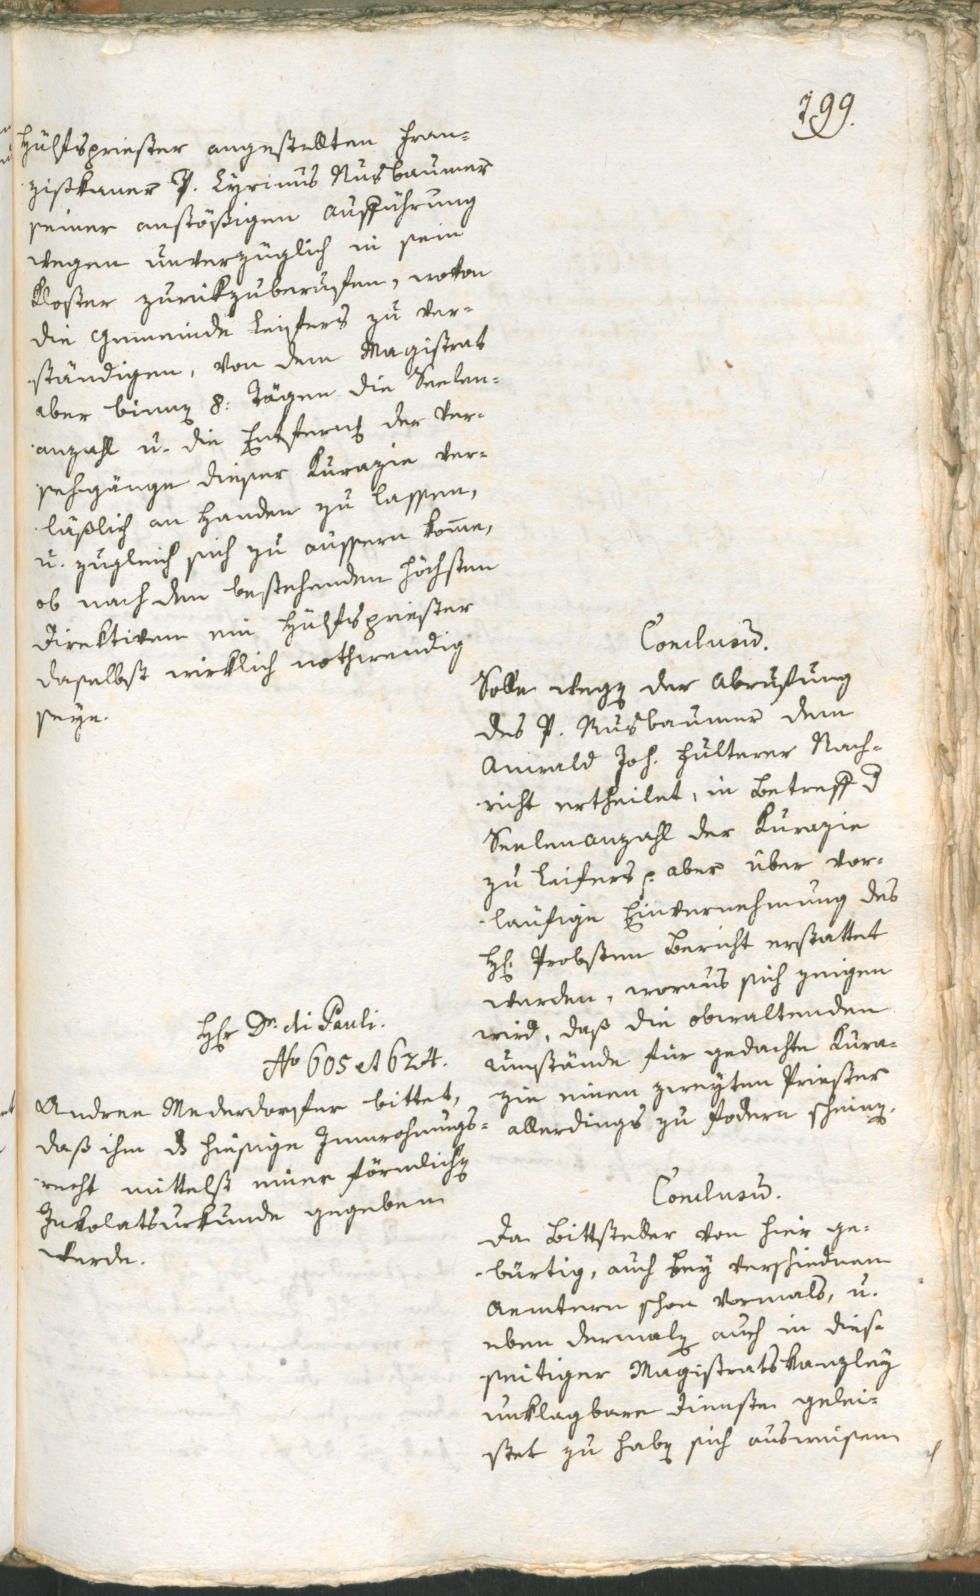 199.
Hülfspriester angestellten Fran-
ziskaner P. Cyrinus Nusbaumer
seiner anstößigen Aufführung
wegen unverzüglich in sein
Kloster zurükzuberufen, wovon
die Gemeinde Leifers zu ver-
ständigen, von dem Magistrat
aber binnen 8: Tägen die Seelen-
anzahl u. die Entfernung der Ver-
sehgänge dieser Kurazie ver-
läßlich an Handen zu lassen,
u. zugleich sich zu äussern komme,
ob nach den bestehenden höchsten
Direktiven ein Hülfspriester
daselbst wirklich nothwendig
seye.
Conclusum.
Solle wegen der Abrufung
des P. Nusbaumer dem
Anwald Joh. Hülterer Nach-
richt ertheilet, in Betreff der
Seelenanzahl der Kurazie
zu Leifers aber über vor-
läufige Einvernehmung des
H. Probsten Bericht erstattet
werden, woraus sich zeigen
wird, daß die obwaltenden
Umstände für gedachte Kura-
zie einen zweyten Priester
allerdings zu fodern scheinen.
Hr Dr. di Pauli.
No 605 et 624.
Andree Mederdorfer bittet,
daß ihm das hiesige Innwohnungs-
recht mittelst einer förmlichen
Inkolatsurkunde gegeben
werde.
Conclusum.
Da Bittsteller von hier ge-
bürtig, auch bey verschiednen
Aemtern schon vormals, u.
eben dermalen auch in dies-
seitiger Magistratskanzley
unklagbare Dienste gelei-
stet zu haben sich ausweisen